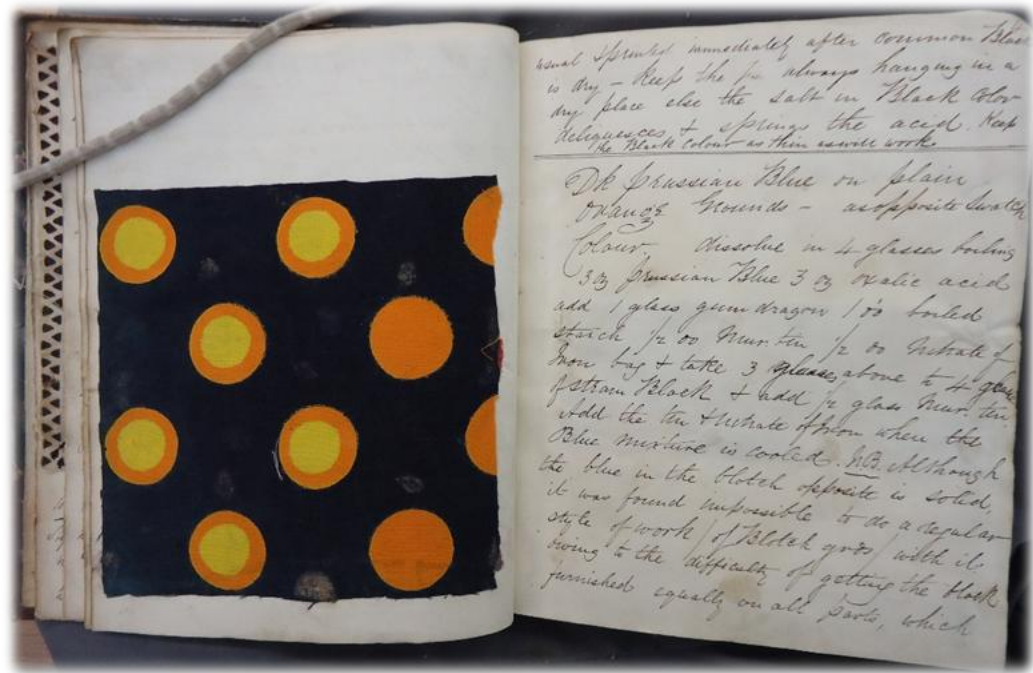 usual & printed immediately after common Black
is dry - Keep the always hanging in a
dry place else the salt in Black Color
deliquesces & springs the acid. Keep
the Black Colour as thin as will work.
Dk Prussian Blue on plain
Orange Grounds - as opposite Swatch
Colour. dissolve in 4 glasses boiling
3 oz Prussian Blue 3 oz oxalic acid
add 1 glass gum dragon 1 boiled
starch 1/2 Mur. tin 1/2 Nitrate of
Iron & take 3 glasses above to 4 glasses
of Black & add 1/2 glass Mur. tin.
Add the tin & nitrate of Iron when the
Blue mixture is cooled. N.B. Although
the blue in the blotch opposite is solid,
it was found impossible to do a regular
style of work / of Blotch grds / with it
owing to the difficulty of getting the block
furnished equally on all parts, which